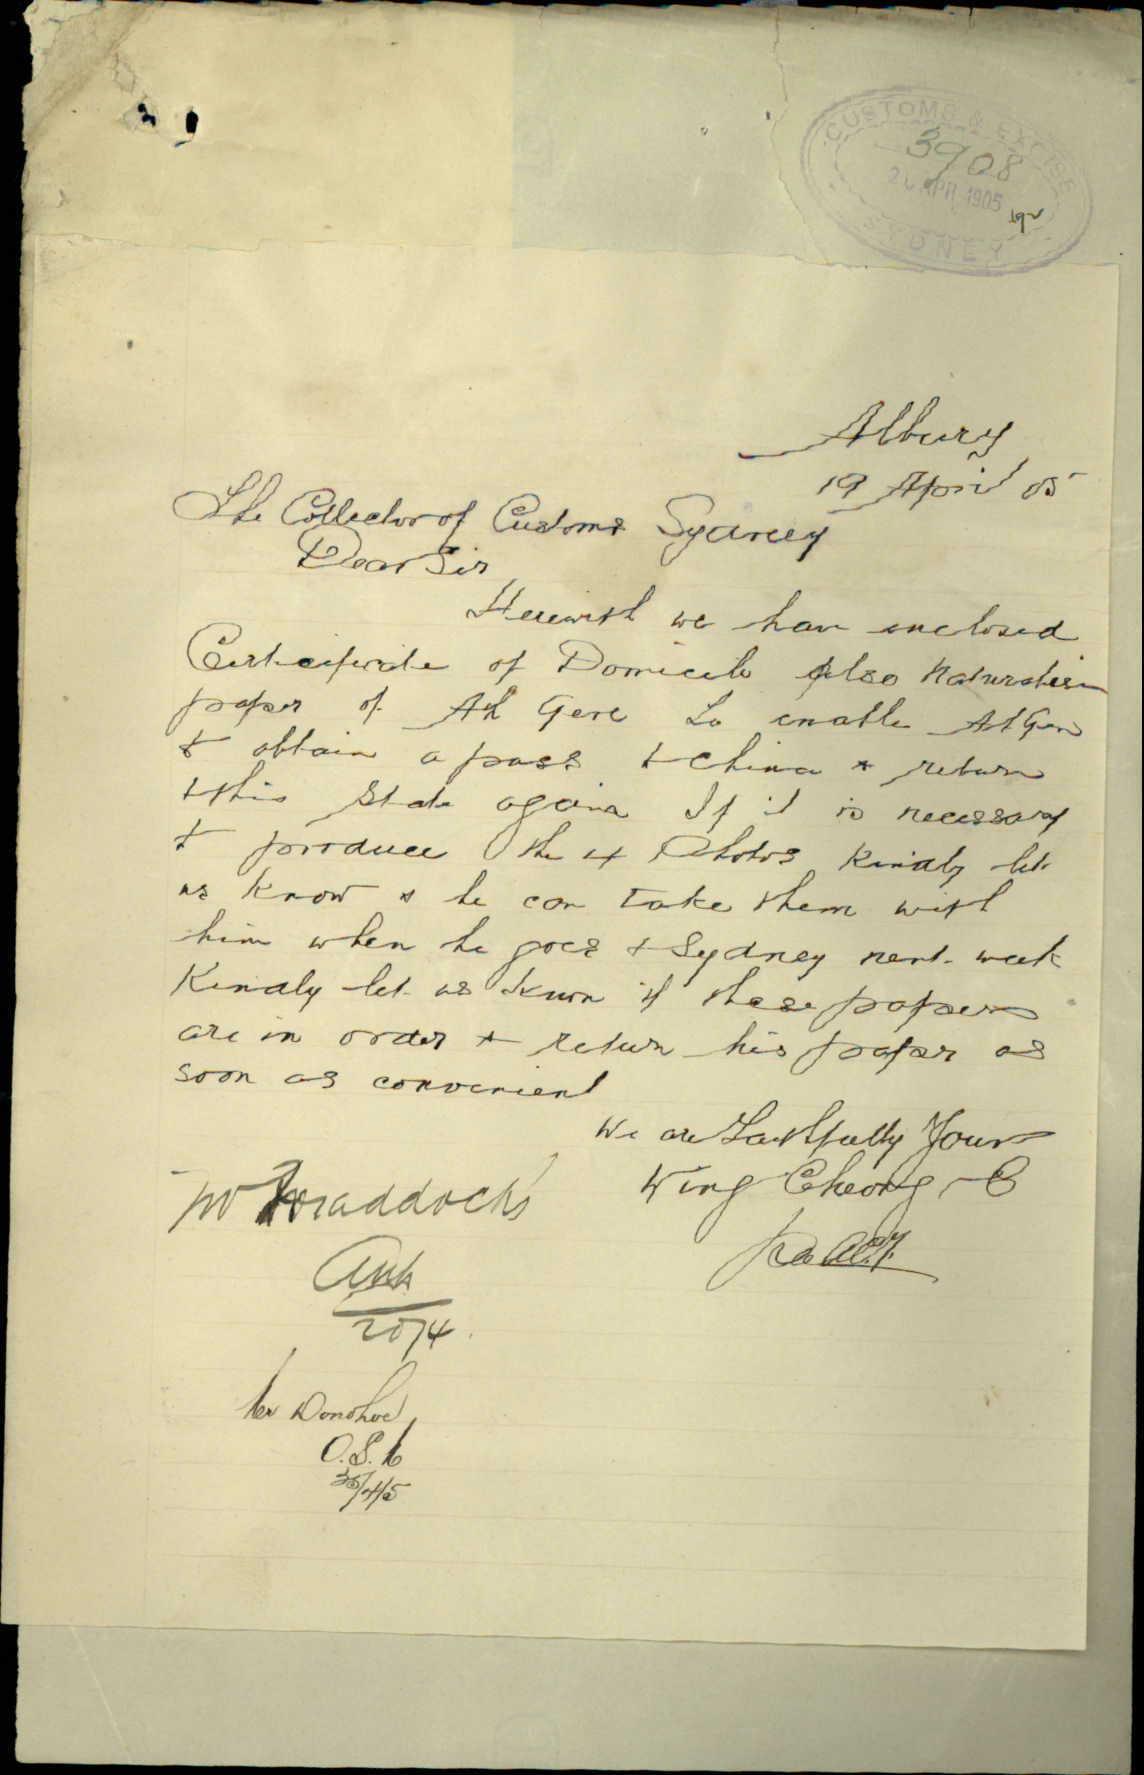 CUSTOMS & EXCISE
3908
20 APR 1905
SYDNEY
Albury
19 April 05
The Collector of Customs Sydney
Dear Sir
Herewith we have enclosed
Certificate of Domicile also
paper of Ah Gere to enable Ah Gere
t obtain a pass t China & return
t this State again If it is necessary
t produce the 4 Photos Kindly let
us know & he can take them with
him when he goes t Sydney next week
Kindly let us know if these papers
are in order & return his paper as
soon as convenient
We are Faithfully Yours
Wing Cheong & C
Mr Maddocks
20/4
Mr Donohoe
O.S.
/4/5